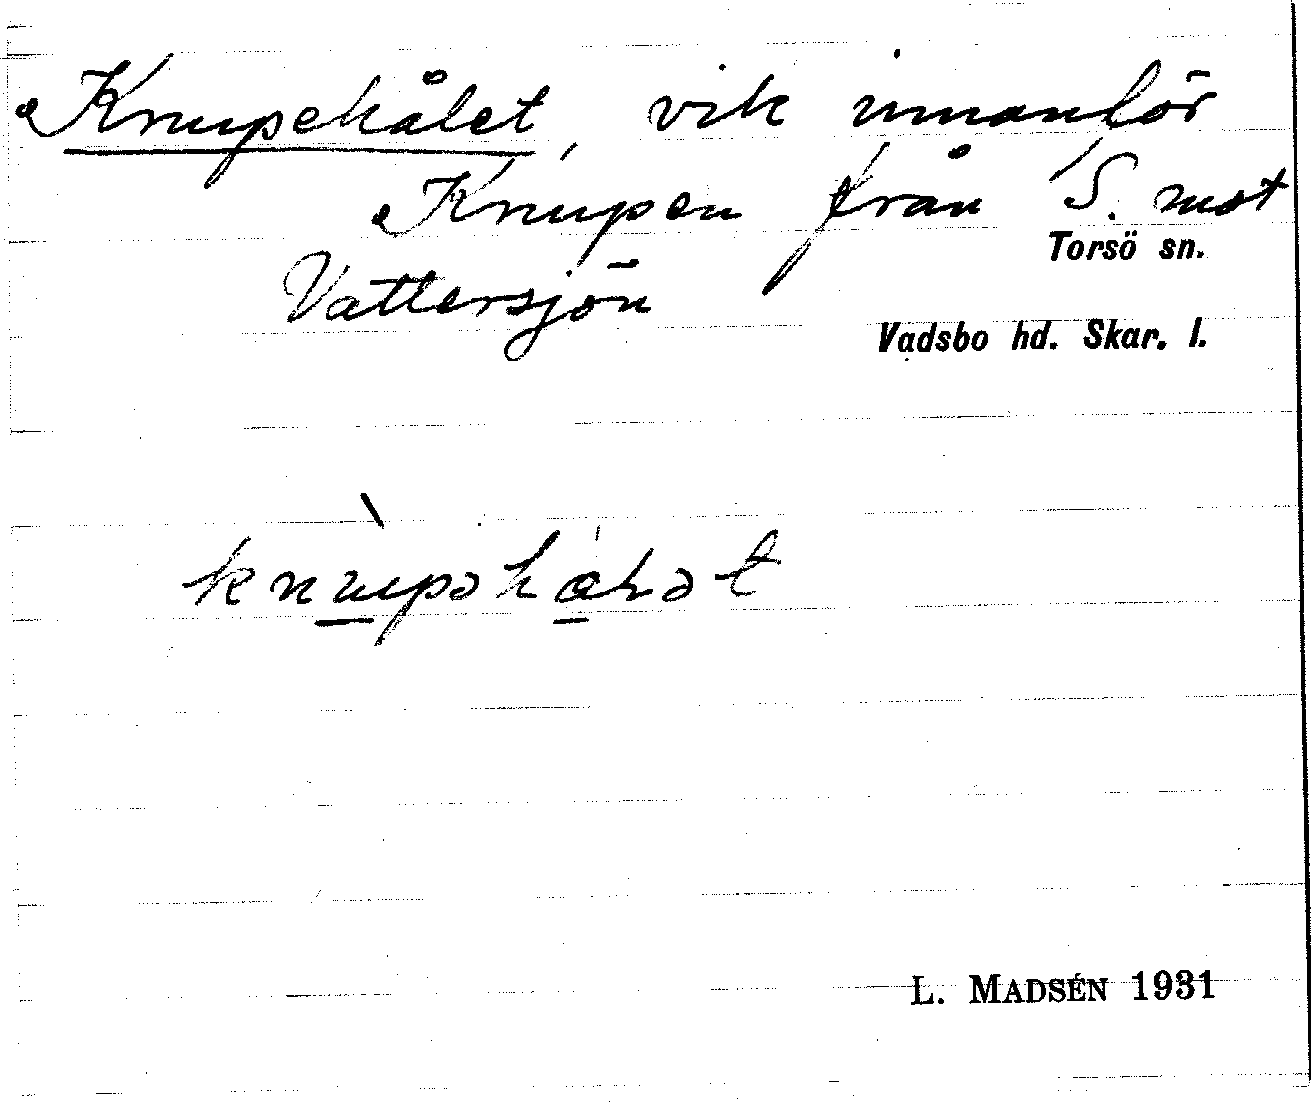 Knupehålet, vik innanför
Knupen från S. mot
Torsö sn.
Vattersjön
Vadsbo hd. Skar. l.
L. MADSÉN 1931